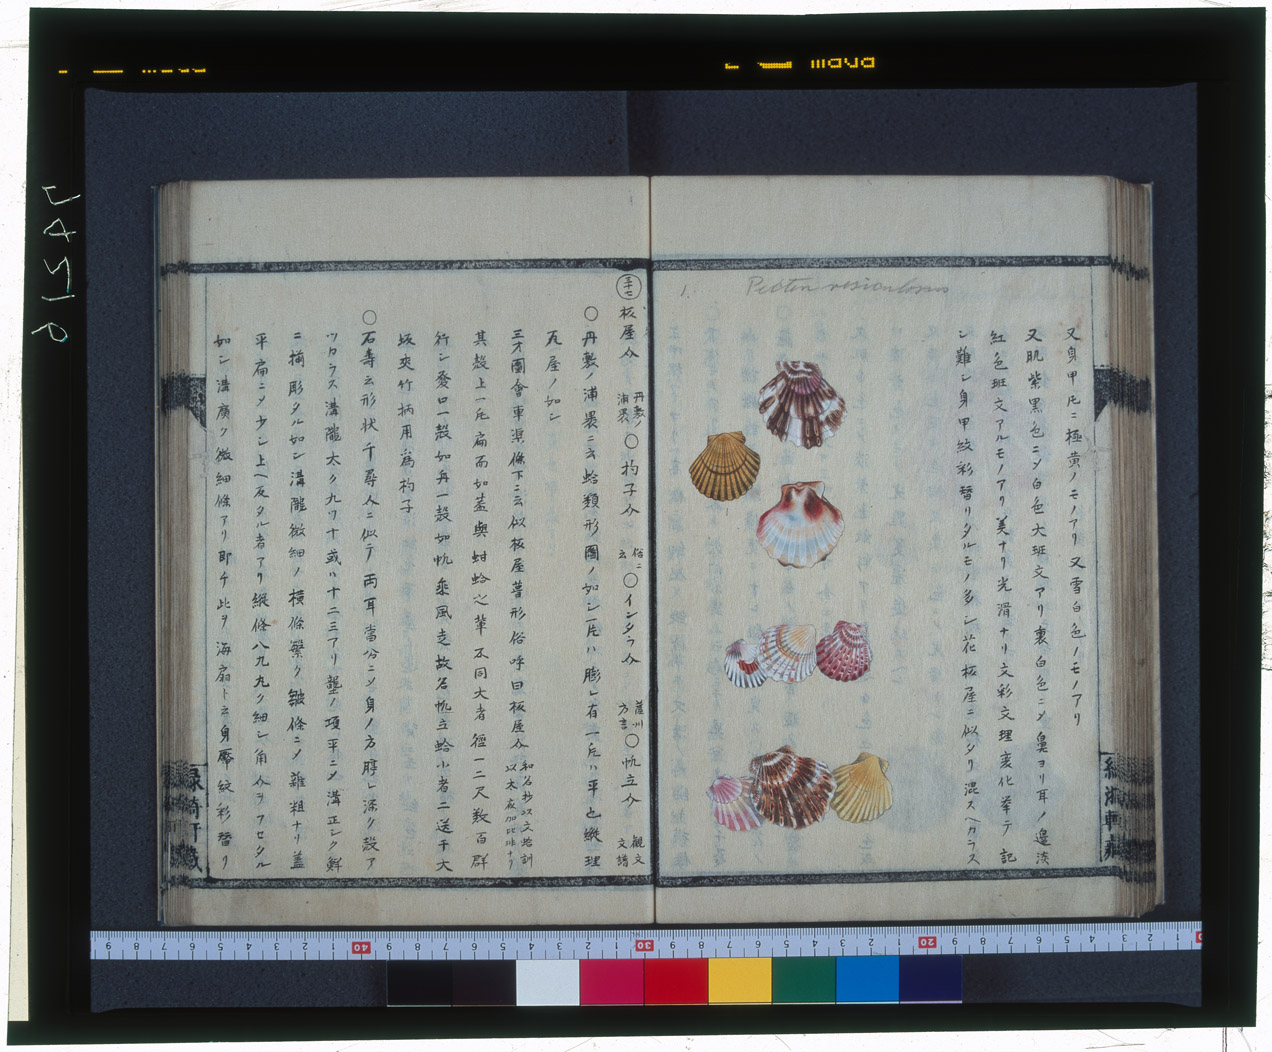 1. Pecten vesiculosus
又身甲℄ニ極黄ノモノアリ又雪白色ノモノアリ
又肌紫黒色ニメ白色大斑文アリ裏白色ニメ鼻ヨリ耳ノ邉淡
紅色斑文アルモノアリ美ナリ光滑ナリ文彩文理変化挙テ記
シ難シ身甲紋彩替リタルモノ多シ花板屋ニ似タリ混スヘカラス
三十七
板屋介 丹敷ノ浦裏 〇杓子介 俗ニ云 〇インタラ介 藝州方言 〇帆立介 観文文譜
〇丹敷ノ浦裏ニ云蛤類形圓ノ如シ一片ハ膨レ有一片ハ平也縦理
瓦屋ノ如シ
三才圖會車渠條下ニ云似板屋葺形俗呼曰板屋介
其殻上一片扁而如蓋與蚶蛤之輩不同大者徑一二尺数百群
行シ発口一殻如舟一殻如帆乗風走故名帆立蛤小者二送千大
坂夾竹柄用為杓子
〇石壽云形状千尋介ニ似テ両耳當分ニメ身ノ方脝レ深ク殻ア
ツカラス溝隴太ク九ツ十或ハ十二三アリ蓋ノ項平ニメ溝正シク鮮
ニ揃彫タル如シ溝隴微細ノ横條繁ク皺條ニメ雜粗ナリ蓋
平扁ニメ少シ上ヘ反タル者アリ縦條八九九ク細シ角介ヲフセタル
如シ溝廣ク微細條アリ即チ此ヲ海扇ト云身厴紋彩替リ